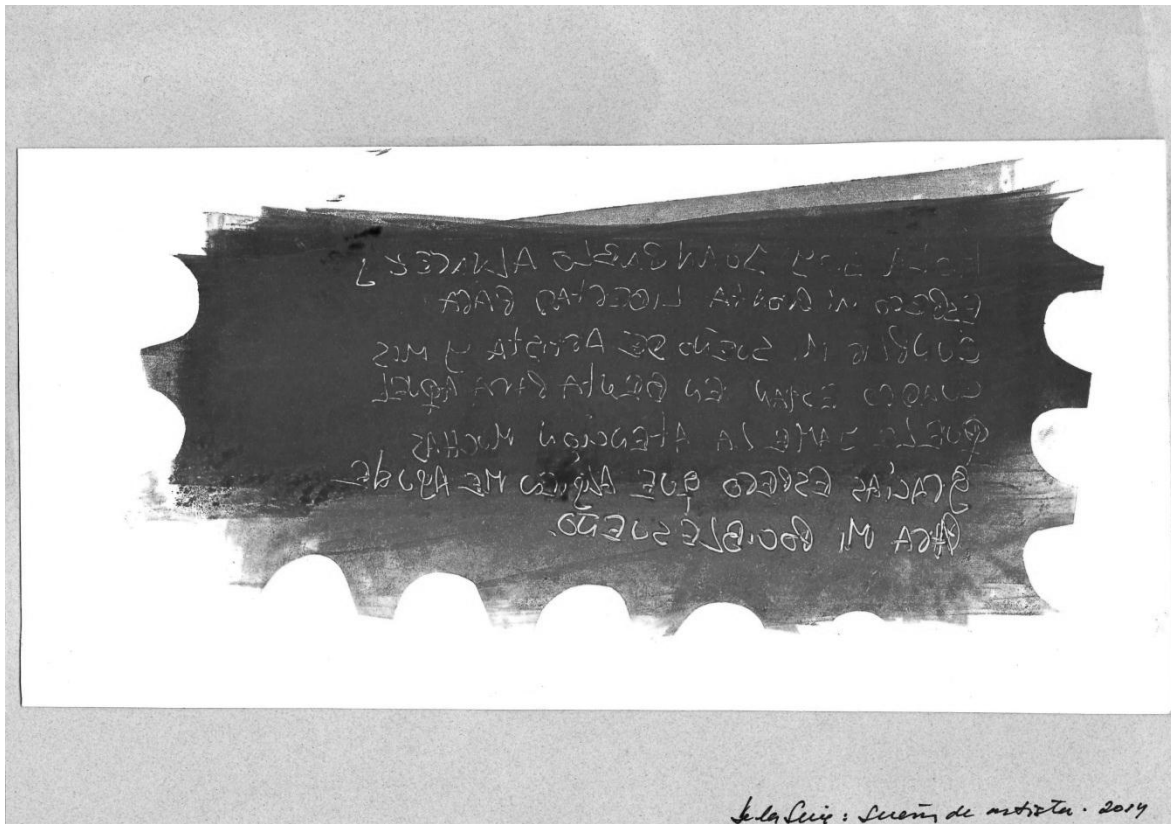 HOLA SOY JUAN PABLO Y
ESPERO MI PRONTA LIBERTAD PARA
CUMPLIR MI SUEÑO DE ARTISTA Y MIS
CUADRO ESTAN EN BENTA PARA AQUEL
QUE LE LA ATENCION MUCHAS
GRACIAS ESPERO QUE ALGIEN ME AYUDE
PARA MI POCIBLE SUEÑO.
De la Serie: Sueño de artista. 2014